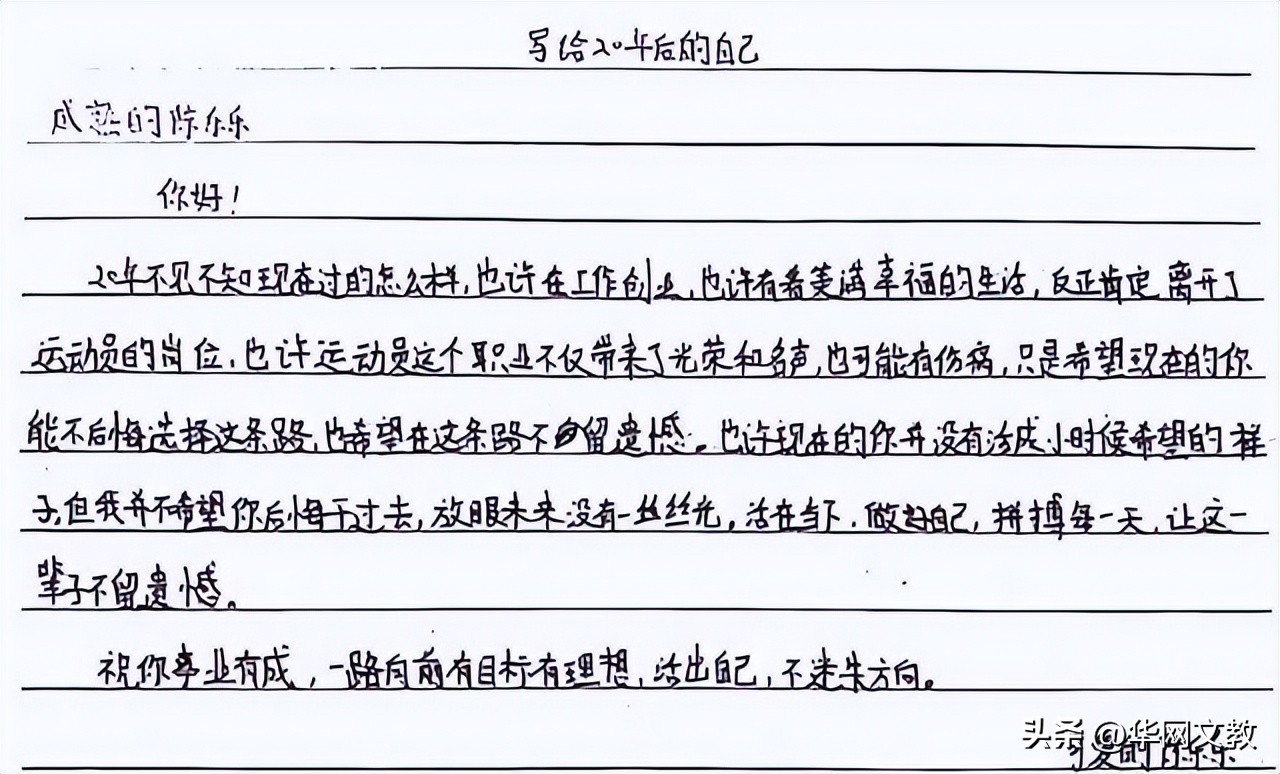 写给20年后的自己
成熟的陈乐乐
你好！
20年不见不知现在过的怎么样，也许在工作创业，也许有着美满幸福的生活，反正肯定离开了
运动员的岗位，也许运动员这个职业不仅带来了光荣和名声，也可能有伤病，只是希望现在的你
能不后悔选择这条路，也希望在这条路不留遗憾。也许现在的你并没有活成小时候希望的样
子，但我并不希望你后悔于过去，放眼未来没有一丝丝光，活在当下，做好自己，拼搏每一天，让这一
辈子不留遗憾。
祝你事业有成，一路向前有目标有理想，活出自己，不迷失方向。
头条 @华网文教
可爱的陈乐乐